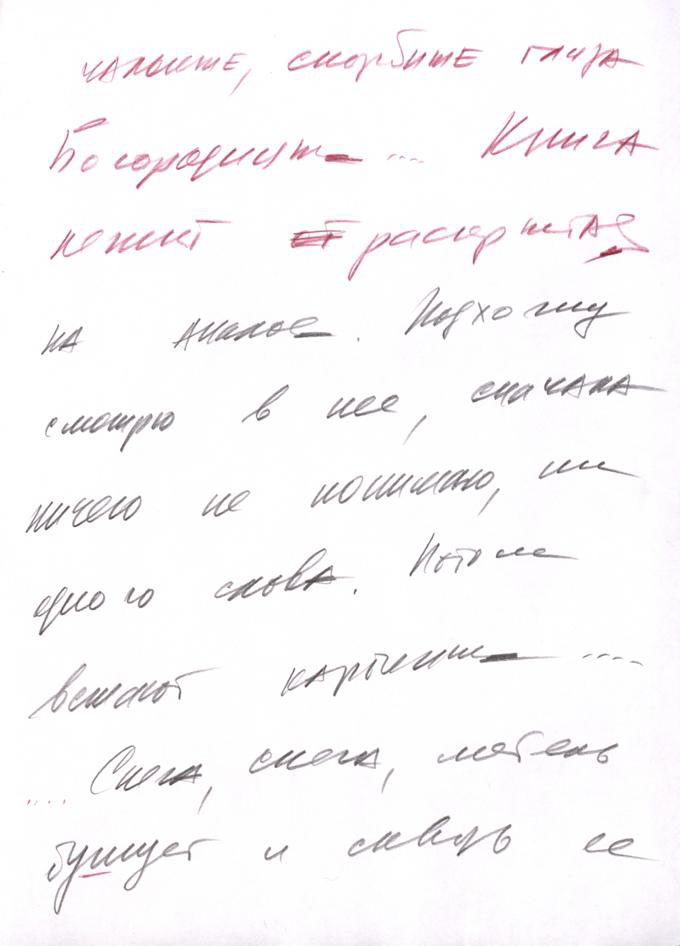 чальные, скорбные глаза
Богородицы ... Книга
лежит раскрытая
на аналое. Подхожу
смотрю в нее, сначала
ничего не понимаю, ни
одного слова. Потом
встают картины ....
.... Снега, снега, метель
бушует и сквозь ее